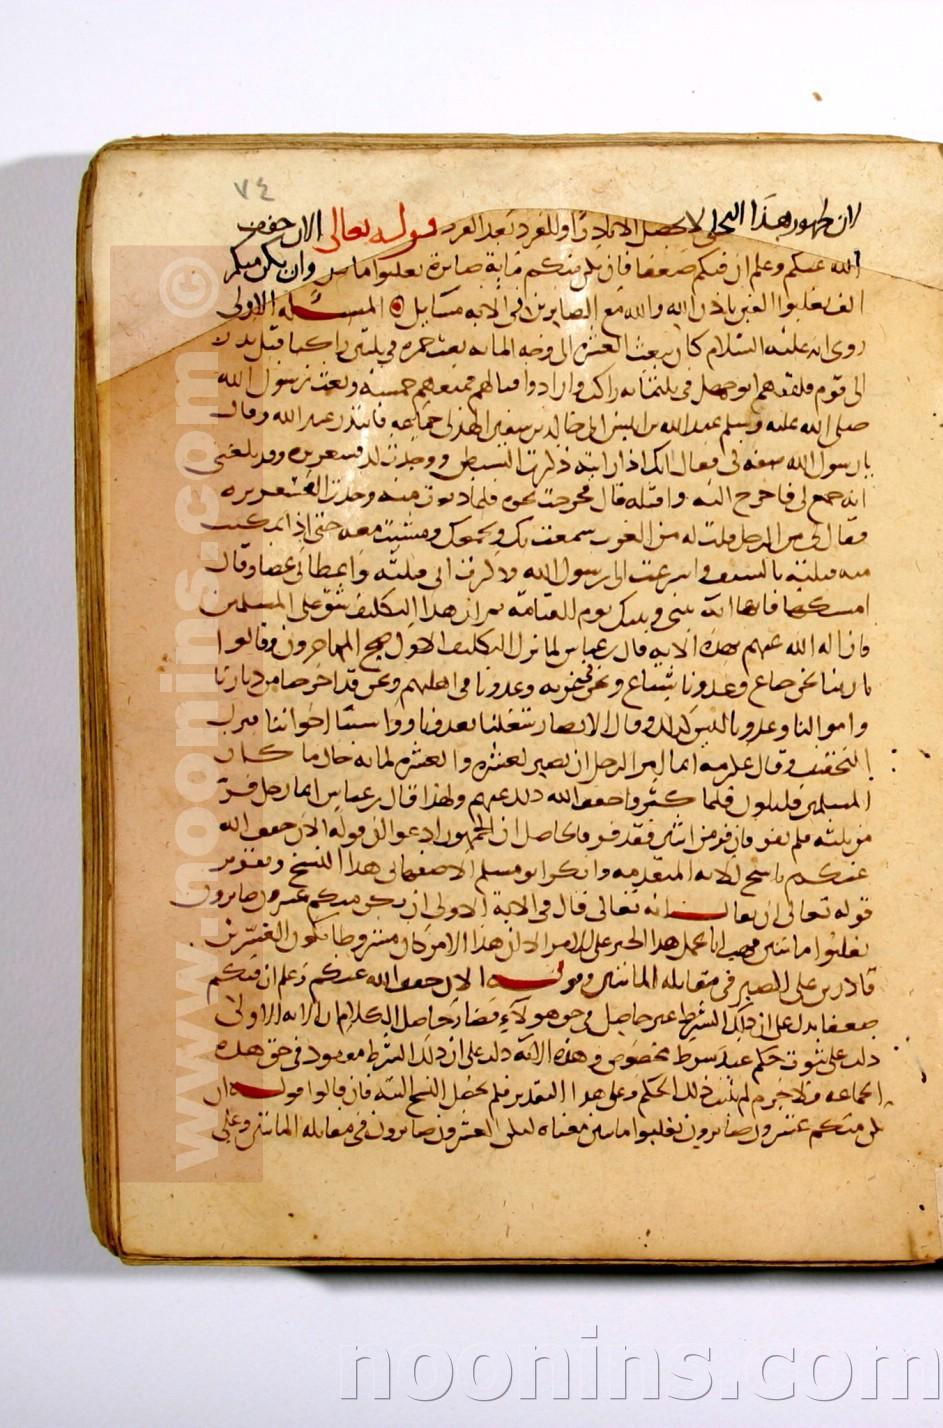 ٧٤
لان ظهور هذا التجلي لا يحصل الا نادرا وللفرد بعد الفرد قوله تعالى الان خفف
الله عنكم وعلم ان فيكم ضعفا فان يكن منكم مايه صابرة يغلبوا مايتين وان يكن منكم
الف يغلبوا الفين باذن الله والله مع الصابرين في الايه مسايل المسئله الاولى
روى انه عليه السلام كان يبعث العشرة الى وجه المايه بعث حمزه في ثلثين راكبا قبل بدر
الى قوم فلقيهم ابو جهل في ثلثمايه راكب وارادوا قتالهم فمنعهم حمزة وبعث رسول الله
صلى الله عليه وسلم عبد الله بن انيس الى خالد بن سفين الهذلي في جماعه فابتدر عبد الله وقال
يا رسول الله صفه لي فقال انك اذا رايته ذكرت الشيطان ووجدت لذلك قشعريره وقد بلغني
انه جمع لي فاخرج اليه واقتله قال فخرجت نحوه فلما دنوت منه وجدت القشعريره
فقال لي من الرجل قلت له من العرب سمعت بك وبجمعك ومشيت معه حتى اذا تمكنت
منه قتلته بالسيف واسرعت الى رسول الله وذكرت اني قتلته واعطاني عصا وقال
امسكها فانها آية بيني وبينك يوم القيامة ثم ان هذا التكليف شق على المسلمين
فازاله الله عنهم بهذه الايه قال بن عباس لما نزل التكليف الاول ضج المهاجرون وقالوا
يا ربنا نحن جياع وعدونا شباع ونحن في غربه وعدونا في اهليهم ونحن قد اخرجنا من ديارنا
واموالنا وعدونا ليس كذلك وقال الانصار شغلنا بعدونا وواسينا اخواننا فنزل
التخفيف وقال عكرمه انما امر الرجل ان يصبر لعشرة والعشره لمايه حال ما كان
المسلمين قليلون فلما كثروا خفف الله ذلك عنهم ولهذا قال بن عباس ايما رجل فر
من ثلثه فلم يفر فان فر من اثنين فقد فر والحاصل ان الجمهور ادعوا ان قوله الان خفف الله
عنكم ناسخ للايه المتقدمه وانكر ابو مسلم الاصفهاني هذا النسخ وتقرير
قوله تعالى ان يقال انه تعالى قال في الاية الاولى ان يكن منكم عشرون صابرون
يغلبوا مايتين فهب انا نحمل هذا الخبر على الامر الا ان هذا الامر كان مشروطا بكون العشرين
قادرين على الصبر في مقابله المايتين وقوله الان خفف الله عنكم وعلم ان فيكم
ضعفا يدل على ان ذلك الشرط غير حاصل في حق هولآء فصار حاصل الكلام ان الايه الاولى
دلت على ثبوت حكم عند شرط مخصوص وهذه الاية دلت على ان ذلك الشرط مفقود في حق هذه
الجماعه فلا جرم لم يثبت ذلك الحكم وعلى هذا التقدير فلم يحصل النسخ البتة فان قالوا قوله ان
يكن منكم عشرون صابرون يغلبوا مايتين معناه ليكن العشرون صابرون في مقابله المايتين وعلى
www.noonins.com ©
noonins.com